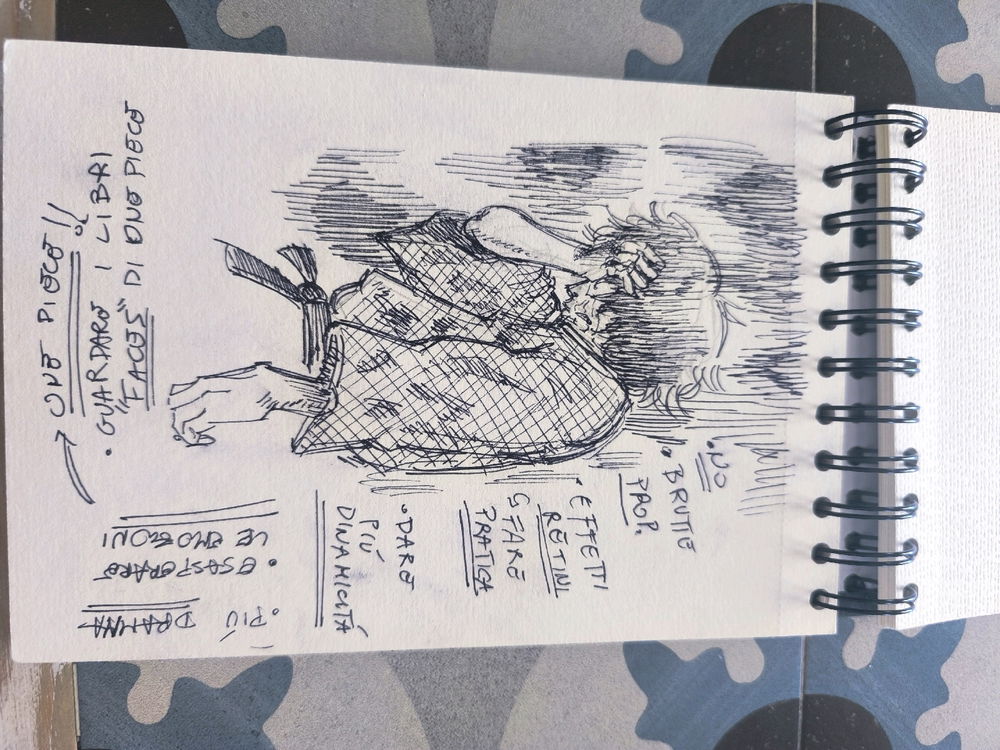 • NO
• BRUTTE
PROP.
• EFFETTI
RETINI
↳ FARE
PRATICA
• DARE
PIÙ
DINAMICITÁ
• PIÙ
DRAMMA
• ESASPERARE
LE EMOZIONI
→ ONE PIECE!!
• GUARDARE I LIBRI
"FACES" DI ONE PIECE